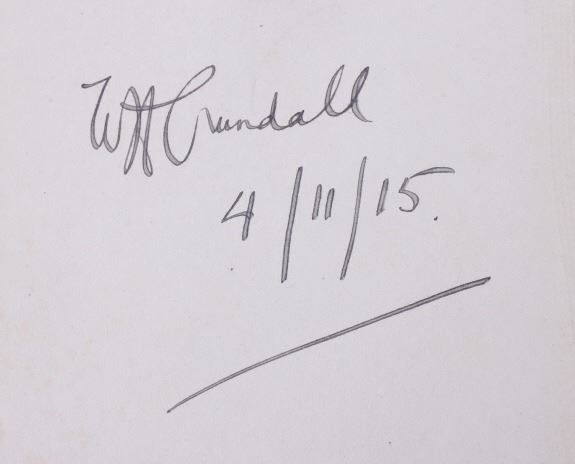 WH Crundall
4/11/15.